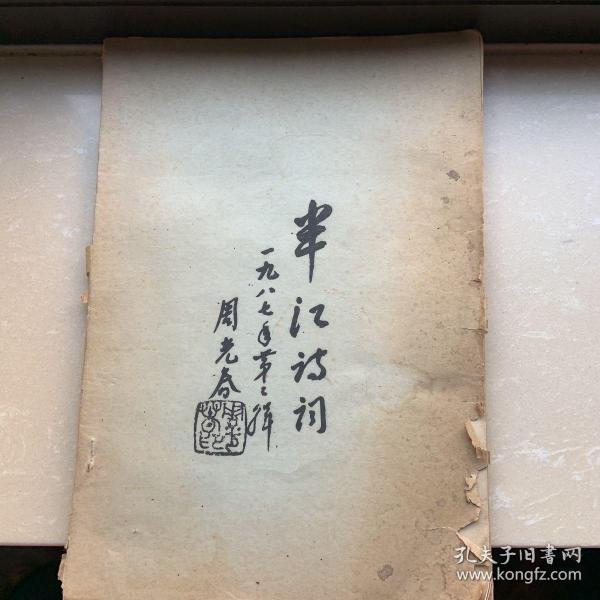 半江诗词
一九八七年第二辑
周光春
孔夫子旧书网
www.kongfz.com